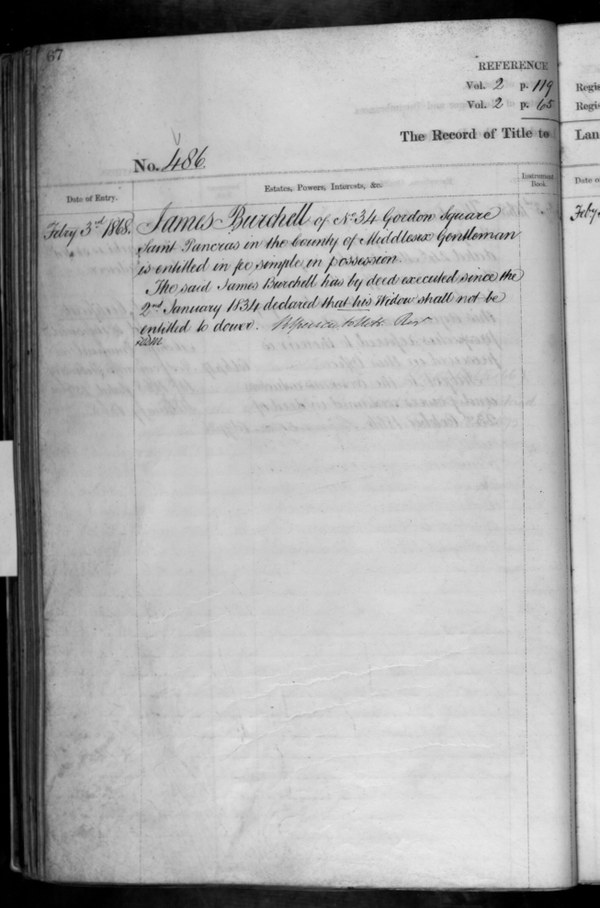 67
REFERENCE
Vol. 2 p. 119
Vol. 2 p. 65
Regis
Regis
The Record of Title to
Lan
No. 486
Date of Entry.
Estates, Powers, Interests, &c.
Instrument Book.
Date o
Feb'y 3rd 1868.
James Burchell of No. 34 Gordon Square
Saint Pancras in the County of Middlesex Gentleman
is entitled in fee simple in possession.
The said James Burchell has by deed executed since the
2nd January 1834 declared that his Widow shall not be
entitled to dower.
Feb'y